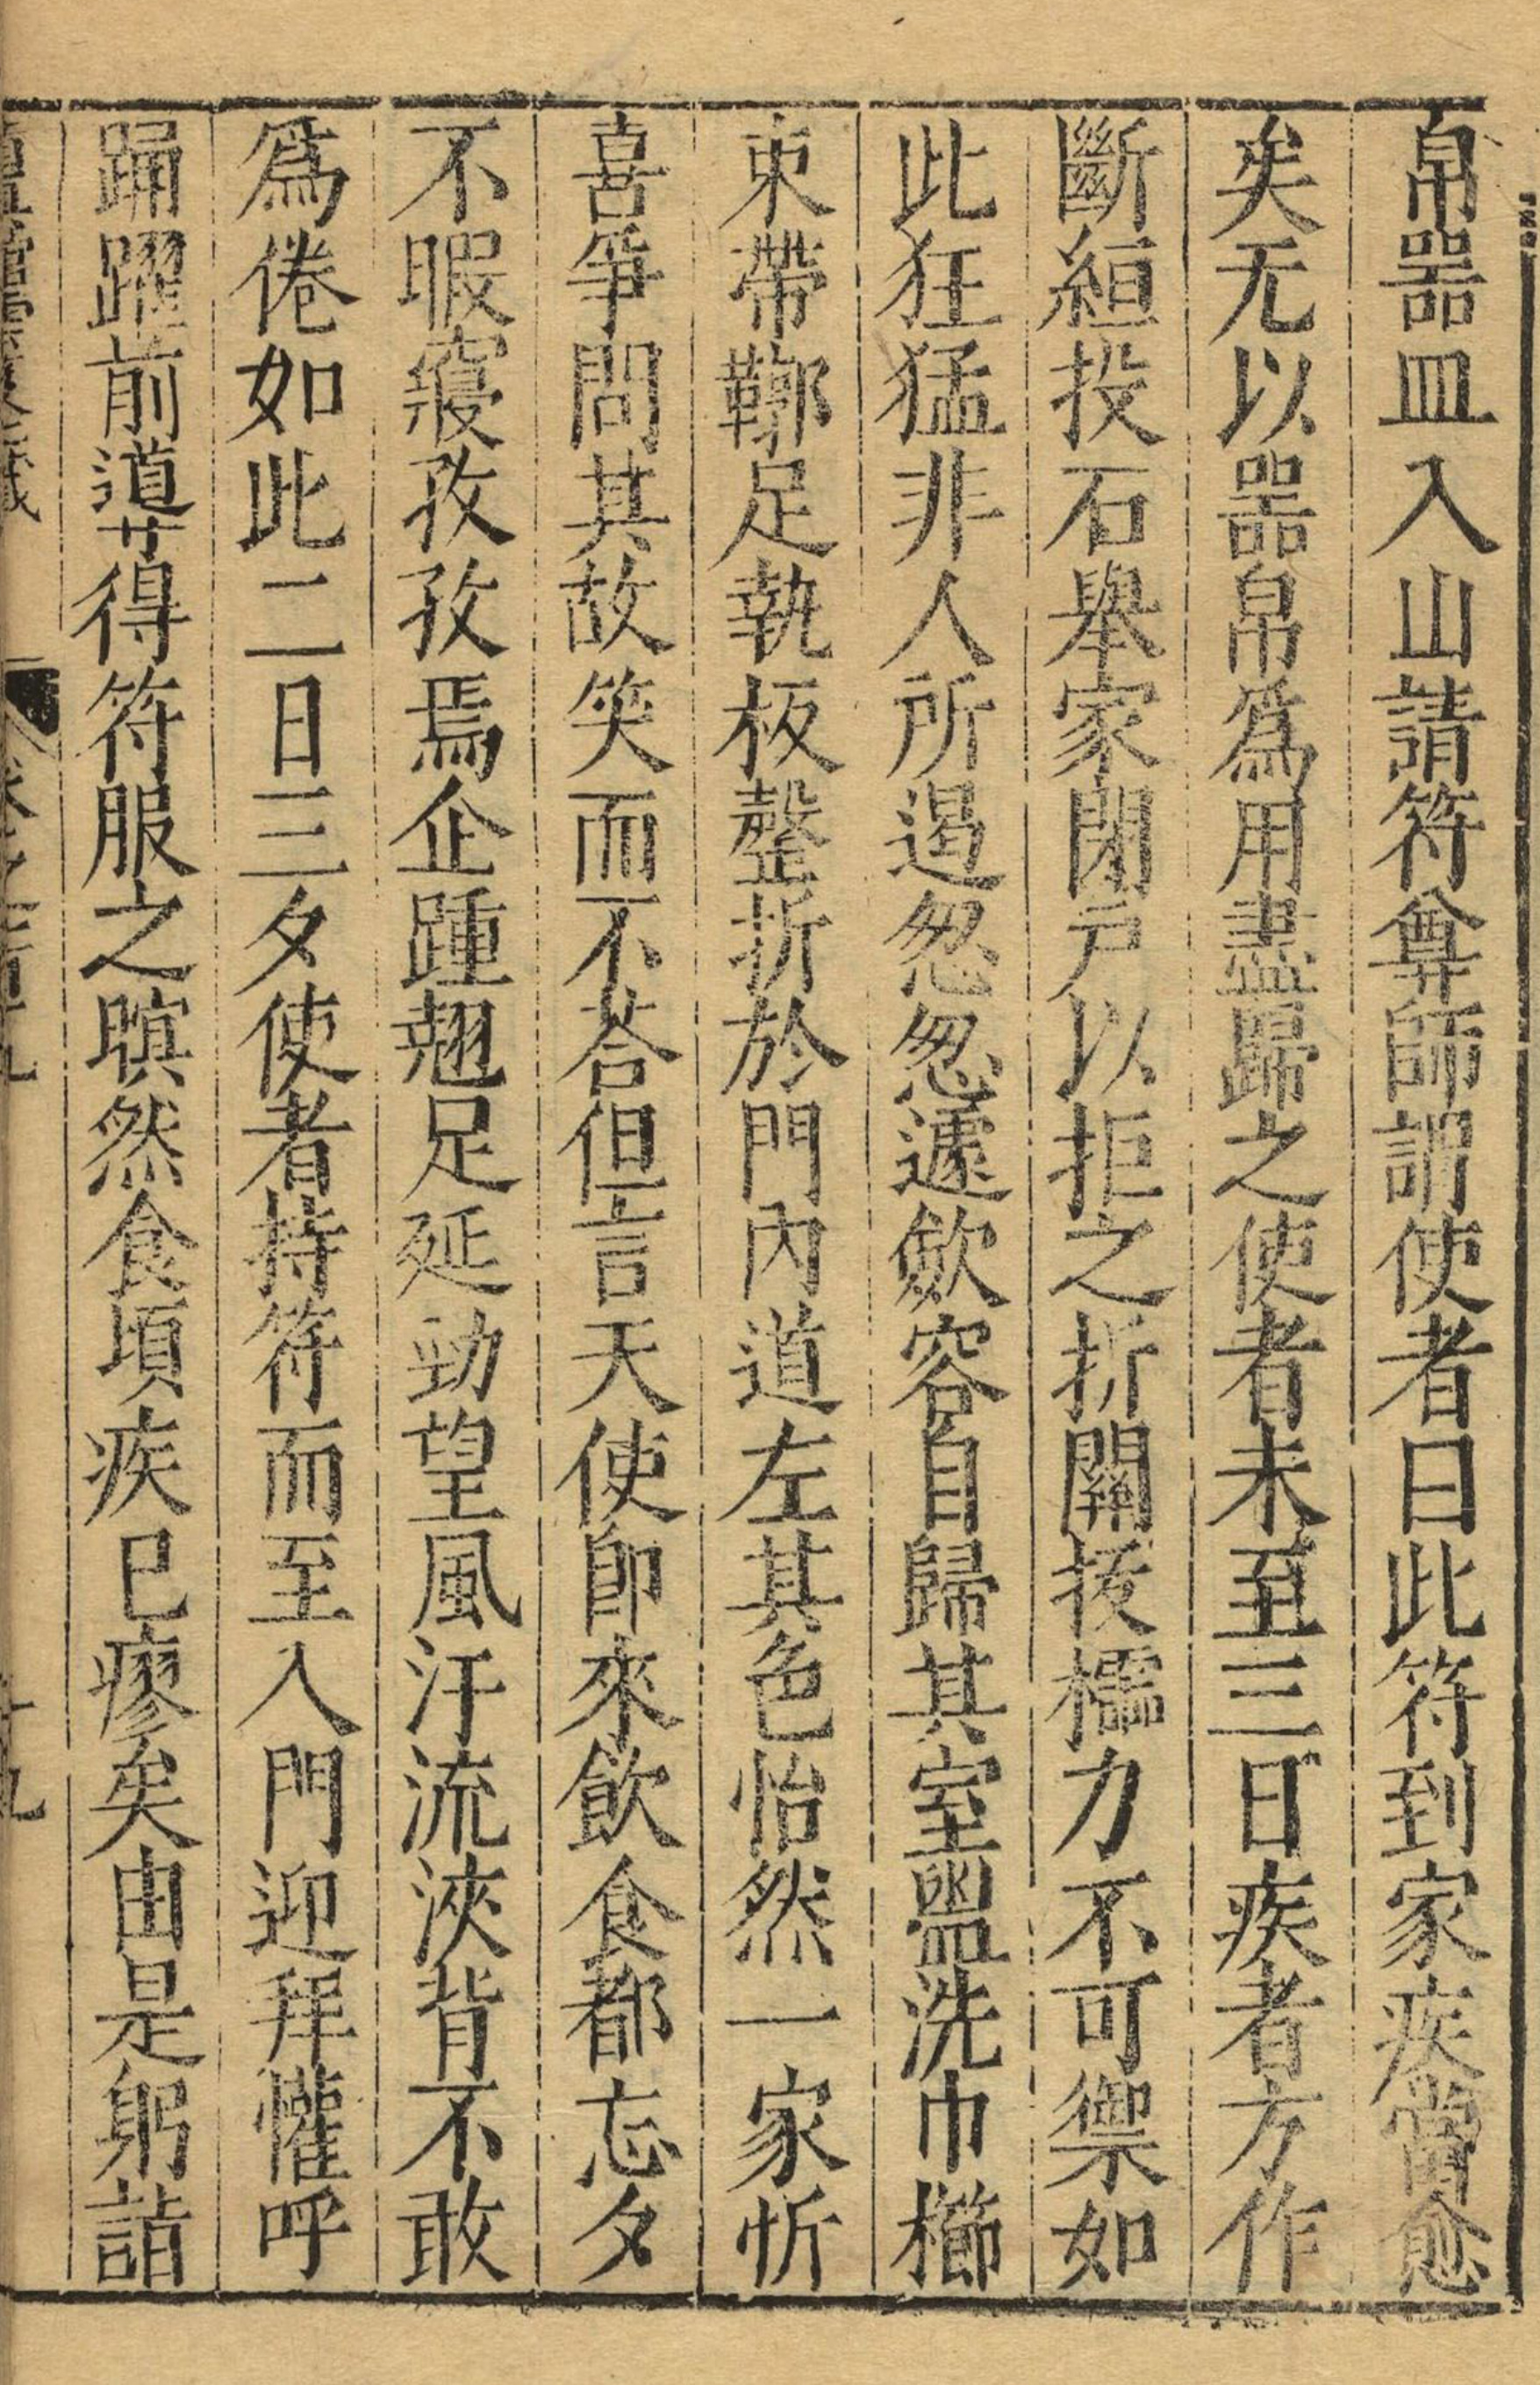 帛器皿入山請符尊師謂使者曰此符到家疾當愈
矣无以器帛爲用盡歸之使者未至三日疾者方作
斷絙投石舉家閉戶以拒之折關拔檽力不可禦如
此狂猛非人所遏忽忽遽歛容自歸其室盥洗巾櫛
束帶鞹足執板罄折於門內道左其色怡然一家忻
喜爭問其故笑而不荅但言天使即來飲食都忘夕
不暇寢孜孜焉企踵翹足延勁望風汗流浹背不敢
爲倦如此二日三夕使者持符而至入門迎拜懽呼
踊躍前導得符服之瞑然食頃疾已瘳矣由是躬詣